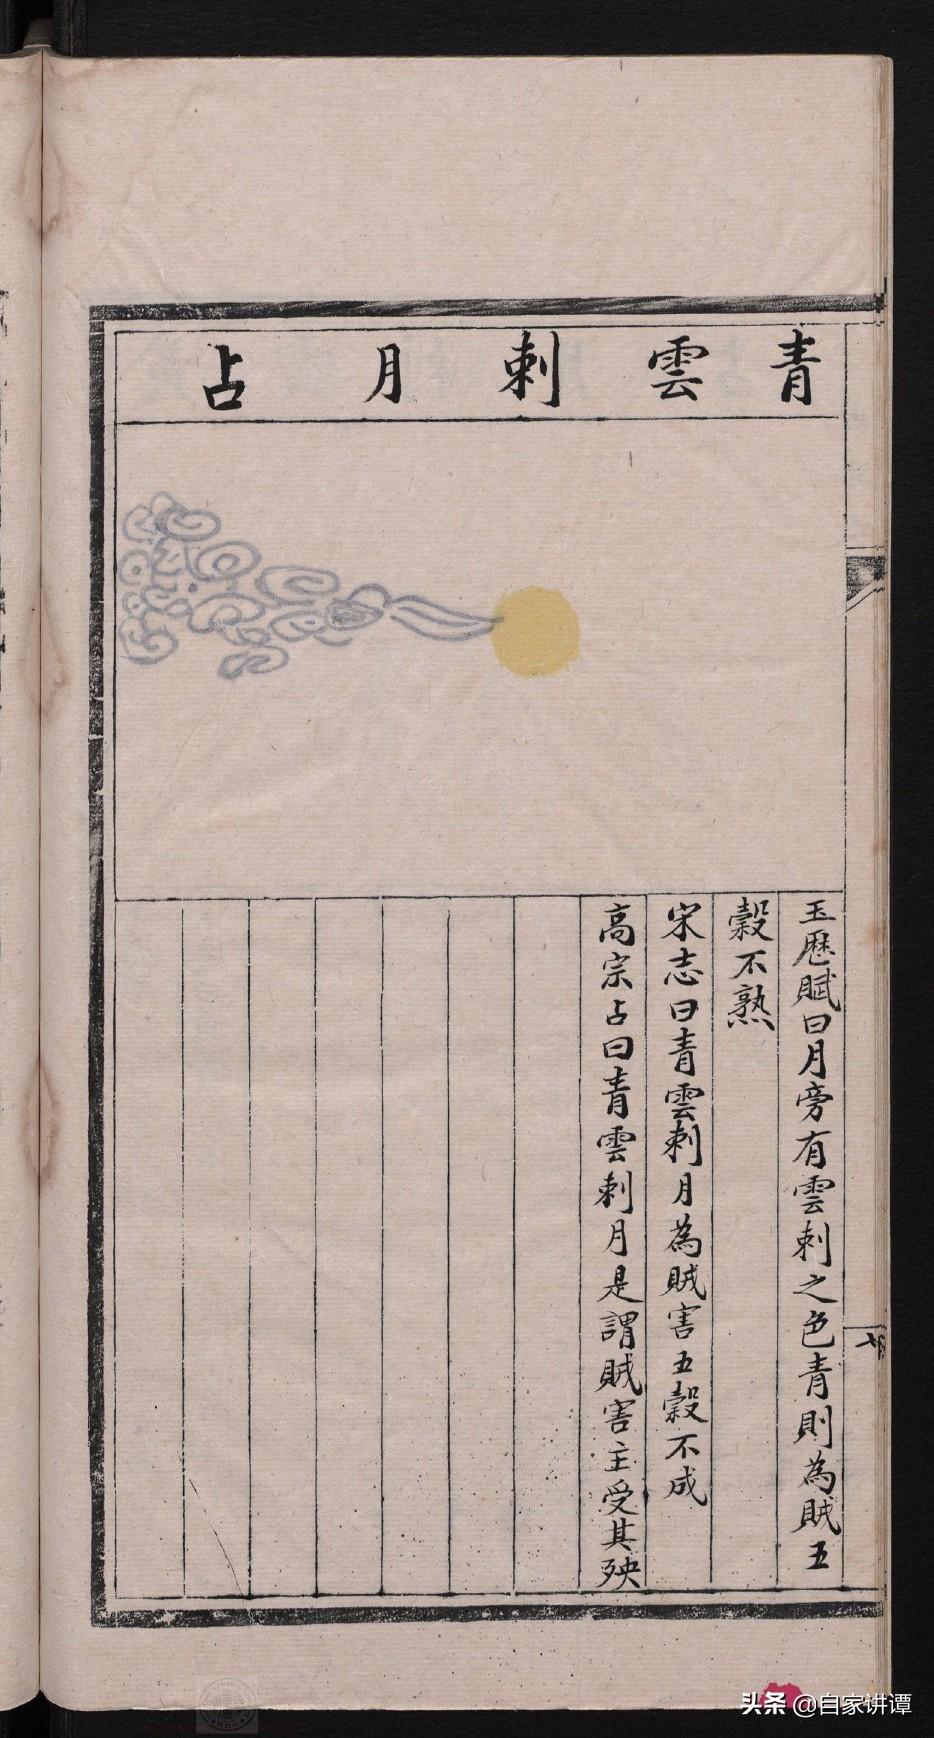 青雲刺月占
玉歷賦曰月旁有雲刺之色青則為賊五
穀不熟
宋志曰青雲刺月為賊害五穀不成
高宗占曰青雲刺月是謂賊害主受其殃
头条 @自家讲谭